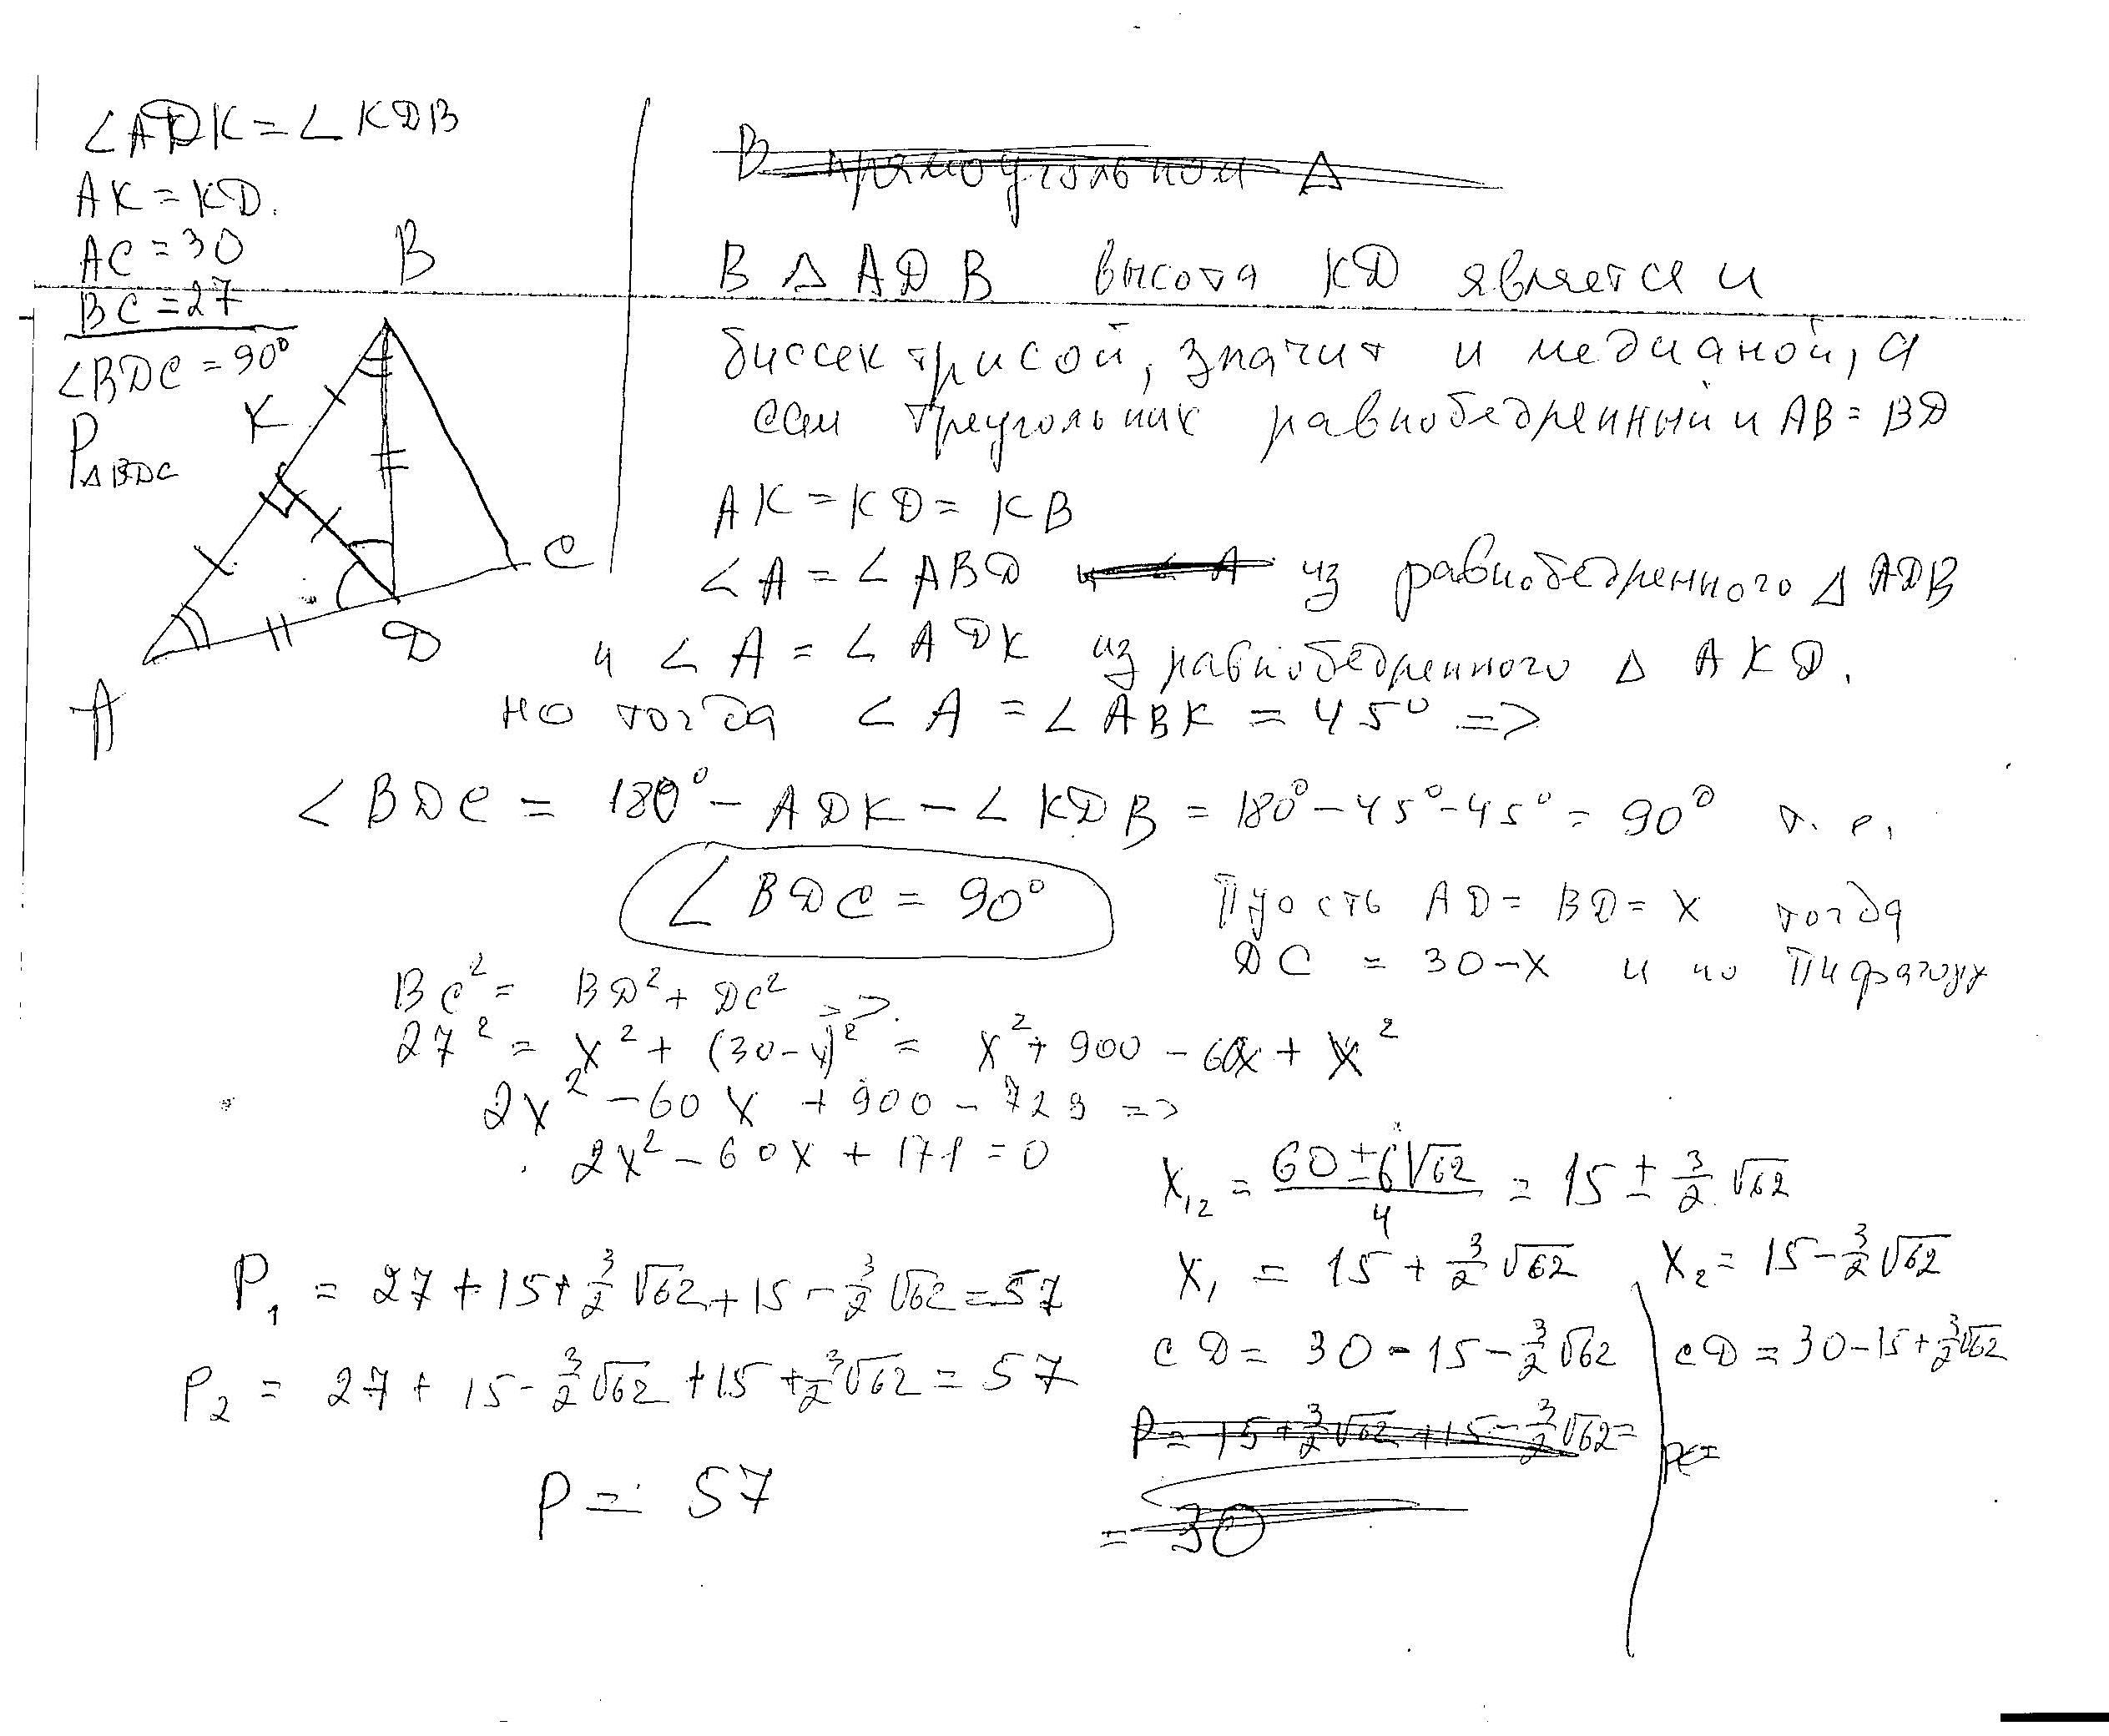 ∠ADK = ∠KDB
AK = KD.
AC = 30
BC = 27
∠BDC = 90°
P△BDC
B
K
C
D
A
В прямоугольном △
В △ ADB высота KD является и
биссектрисой, значит и медианой, а
сам треугольник равнобедренный и AB = BD
AK = KD = KB
∠A = ∠ABD и ∠A из равнобедренного △ ADB
и ∠A = ∠ADK из равнобедренного △ AKD.
но тогда ∠A = ∠ABK = 45° =>
∠BDC = 180° - ADK - ∠KDB = 180° - 45° - 45° = 90° т.е.
∠BDC = 90°
Пусть AD = BD = x тогда
DC = 30 - x и по Пифагору
BC² = BD² + DC² =>
27² = x² + (30-x)² = x² + 900 - 60x + x²
2x² - 60x + 900 - 729 =>
2x² - 60x + 171 = 0
x₁₂ = (60 ± 6√62)/4 = 15 ± 3/2 √62
x₁ = 15 + 3/2 √62
x₂ = 15 - 3/2 √62
CD = 30 - 15 - 3/2 √62
CD = 30 - 15 + 3/2 √62
P = 15 + 3/2 √62 + 15 - 3/2 √62 =
= 30
P₁ = 27 + 15 + 3/2 √62 + 15 - 3/2 √62 = 57
P₂ = 27 + 15 - 3/2 √62 + 15 + 3/2 √62 = 57
P = 57